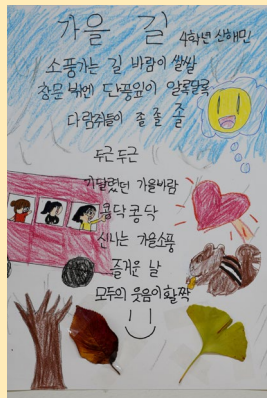 가을 길
4학년 신해민
소풍가는 길 바람이 쌀쌀
창문 밖엔 단풍잎이 알록달록
다람쥐들이 졸 졸 졸
두근두근
기다렸던 가을바람
콩닥콩닥
신나는 가을소풍
즐거운 날
모두의 웃음이 활짝